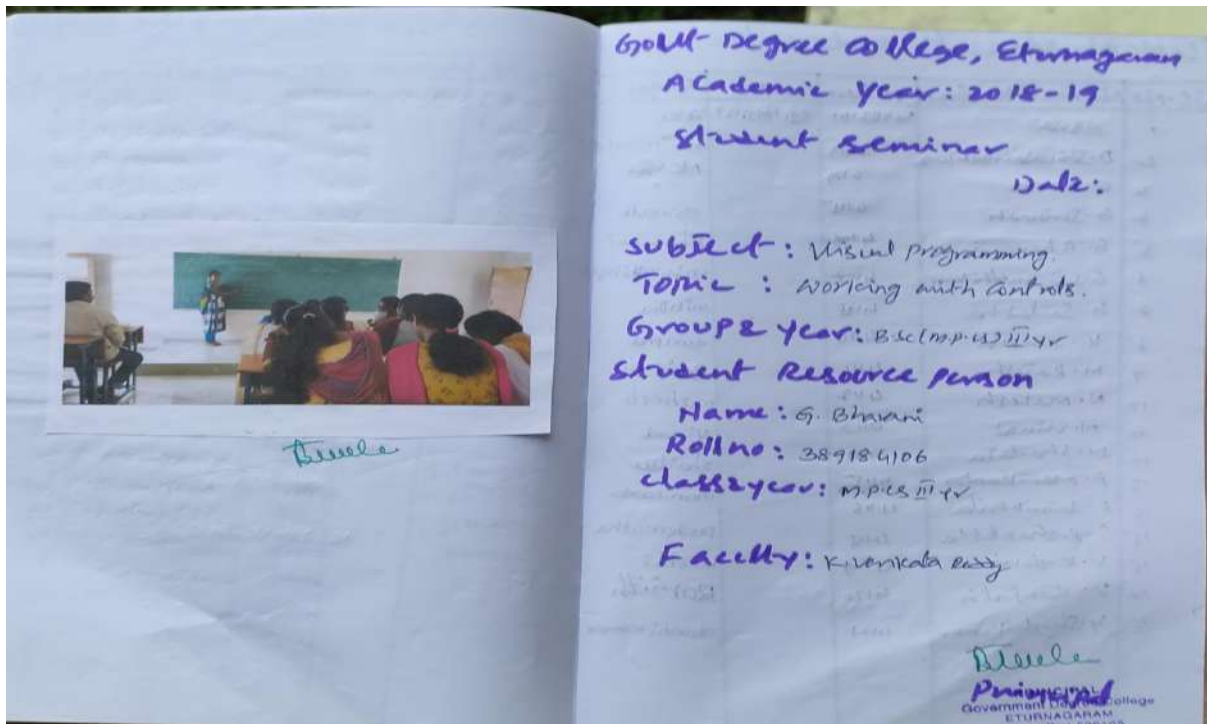 Govt Degree College, Eturnagaram
Academic Year: 2018-19
Student Seminar
Date:
Subject: Visual Programming.
Topic: Working with Controls.
Group & Year: B.Sc (M.P.CS) III yr
Student Resource Person
Name: G. Bhavani
Roll no: 389184106
Class & year: M.P.CS III yr
Faculty: K. Venkata Reddy
Principal
Government Degree College
ETURNAGARAM